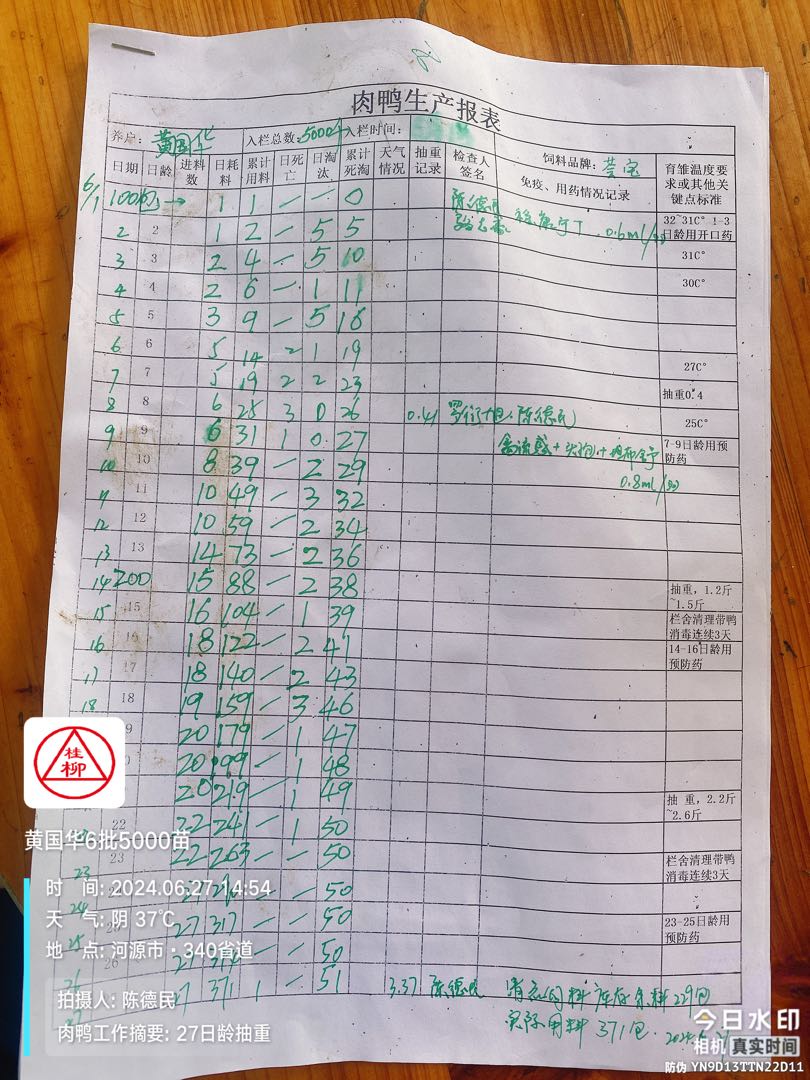 肉鸭生产报表
养户: 黄国华 入栏总数: 5000 入栏时间: 饲料品牌:
日期 日龄 进料数 日耗料 累计用料 日死亡 日淘汰 累计死淘 天气情况 抽重记录 检查人签名 免疫、用药情况记录 育雏温度要求或其他关键点标准
6/1 100包→ 1 1 — — 0 陈德民 0.6ml/ 32~31C° 1-3日龄用开口药
2 2 1 2 — 5 5
3 3 2 4 — 5 10 31C°
4 4 2 6 — 1 11 30C°
5 5 3 9 — 5 16
6 6 5 14 2 1 19
7 7 5 19 2 2 23 27C°
8 8 6 25 3 0 26 0.41 陈德民 抽重0.4 25C°
9 9 6 31 1 0 27 禽流感+ 7-9日龄用预防药
10 10 8 39 — 2 29 0.8ml/
11 11 10 49 — 3 32
12 12 10 59 — 2 34
13 13 14 73 — 2 36
14 200 15 88 — 2 38 抽重,1.2斤~1.5斤
15 15 16 104 — 1 39 栏舍清理带鸭消毒连续3天
16 16 18 122 — 2 41 14-16日龄用预防药
17 17 18 140 — 2 43
18 18 19 159 — 3 46
9 20 179 — 1 47
20 199 — 1 48
20 219 — 1 49 抽 重,2.2斤~2.6斤
22 22 241 — 1 50
23 23 22 263 — — 50 栏舍清理带鸭消毒连续3天
24 — — 50
25 27 317 — — 50 23-25日龄用预防药
26 — — 50
27 371 1 — 51 3.37 陈德民 库存余料229包
实际用料371包.
桂柳
黄国华6批5000苗
时 间: 2024.06.27 14:54
天 气: 阴 37℃
地 点: 河源市·340省道
拍摄人: 陈德民
肉鸭工作摘要: 27日龄抽重
今日水印
相机 真实时间
防伪 YN9D13TTN22D11